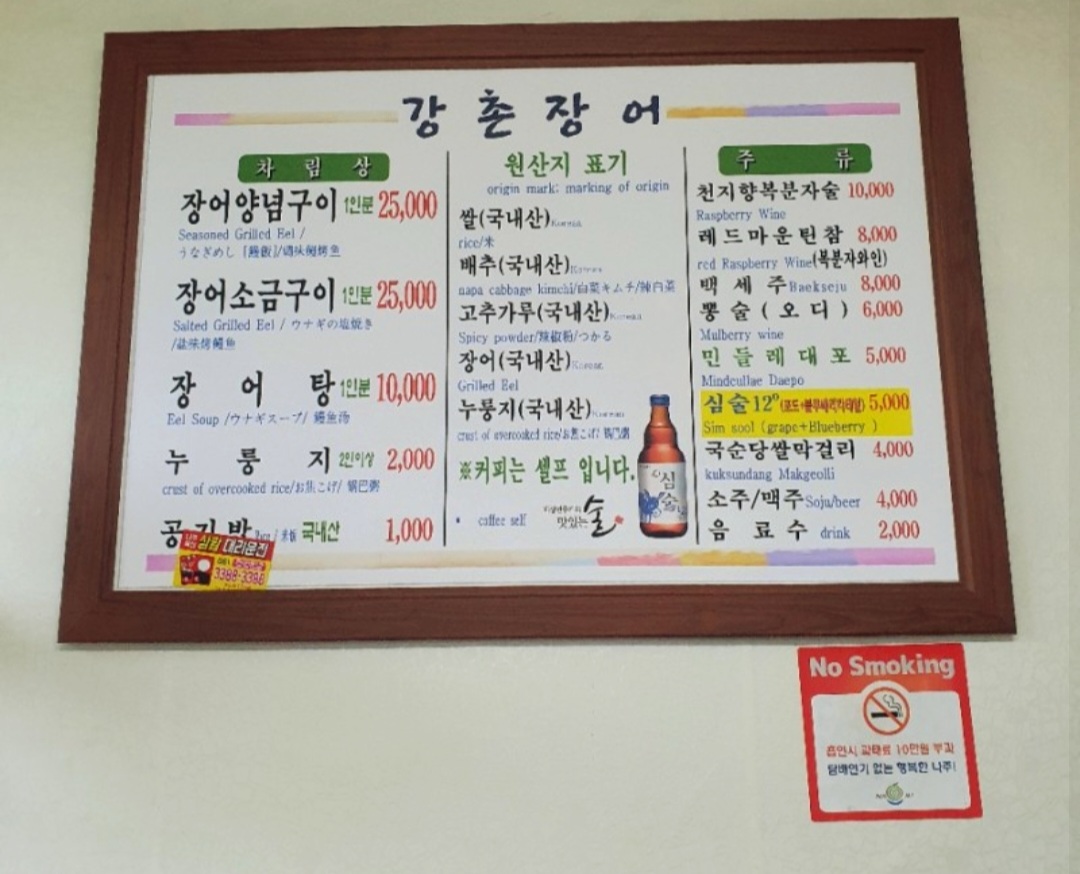 강촌장어
차림상
장어양념구이 1인분 25,000
Seasoned Grilled Eel /
うなぎめし [鰻飯]/调味鳗烤鱼
장어소금구이 1인분 25,000
Salted Grilled Eel / ウナギの塩焼き
/盐味烤鳗鱼
장어탕 1인분 10,000
Eel Soup /ウナギスープ/ 鳗鱼汤
누룽지 2인이상 2,000
crust of overcooked rice/お焦げ/ 锅巴粥
국내산 1,000
대리운전
3388-3388
원산지 표기
origin mark: marking of origin
쌀(국내산) Korean
rice/米
배추(국내산) Korean
napa cabbage kimchi/白菜キムチ/辣白菜
고추가루(국내산) Korean
Spicy powder/辣椒粉/つかる
장어(국내산) Korean
Grilled Eel
누룽지(국내산) Korean
crust of overcooked rice/お焦こげ/ 锅巴粥
※커피는 셀프 입니다.
coffee self
맛있는 술
심술
주류
천지향복분자술 10,000
Raspberry Wine
레드마운틴참 8,000
red Raspberry Wine(복분자와인)
백세주 Baekseju 8,000
뽕술(오디) 6,000
Mulberry wine
민들레대포 5,000
Mindeullae Daepo
심술 12º 5,000
Sim sool (grape+Blueberry )
국순당쌀막걸리 4,000
kuksundang Makgeolli
소주/맥주 Soju/beer 4,000
음료수 drink 2,000
No Smoking
흡연시 과태료 10만원 부과
담배연기 없는 행복한 나주!